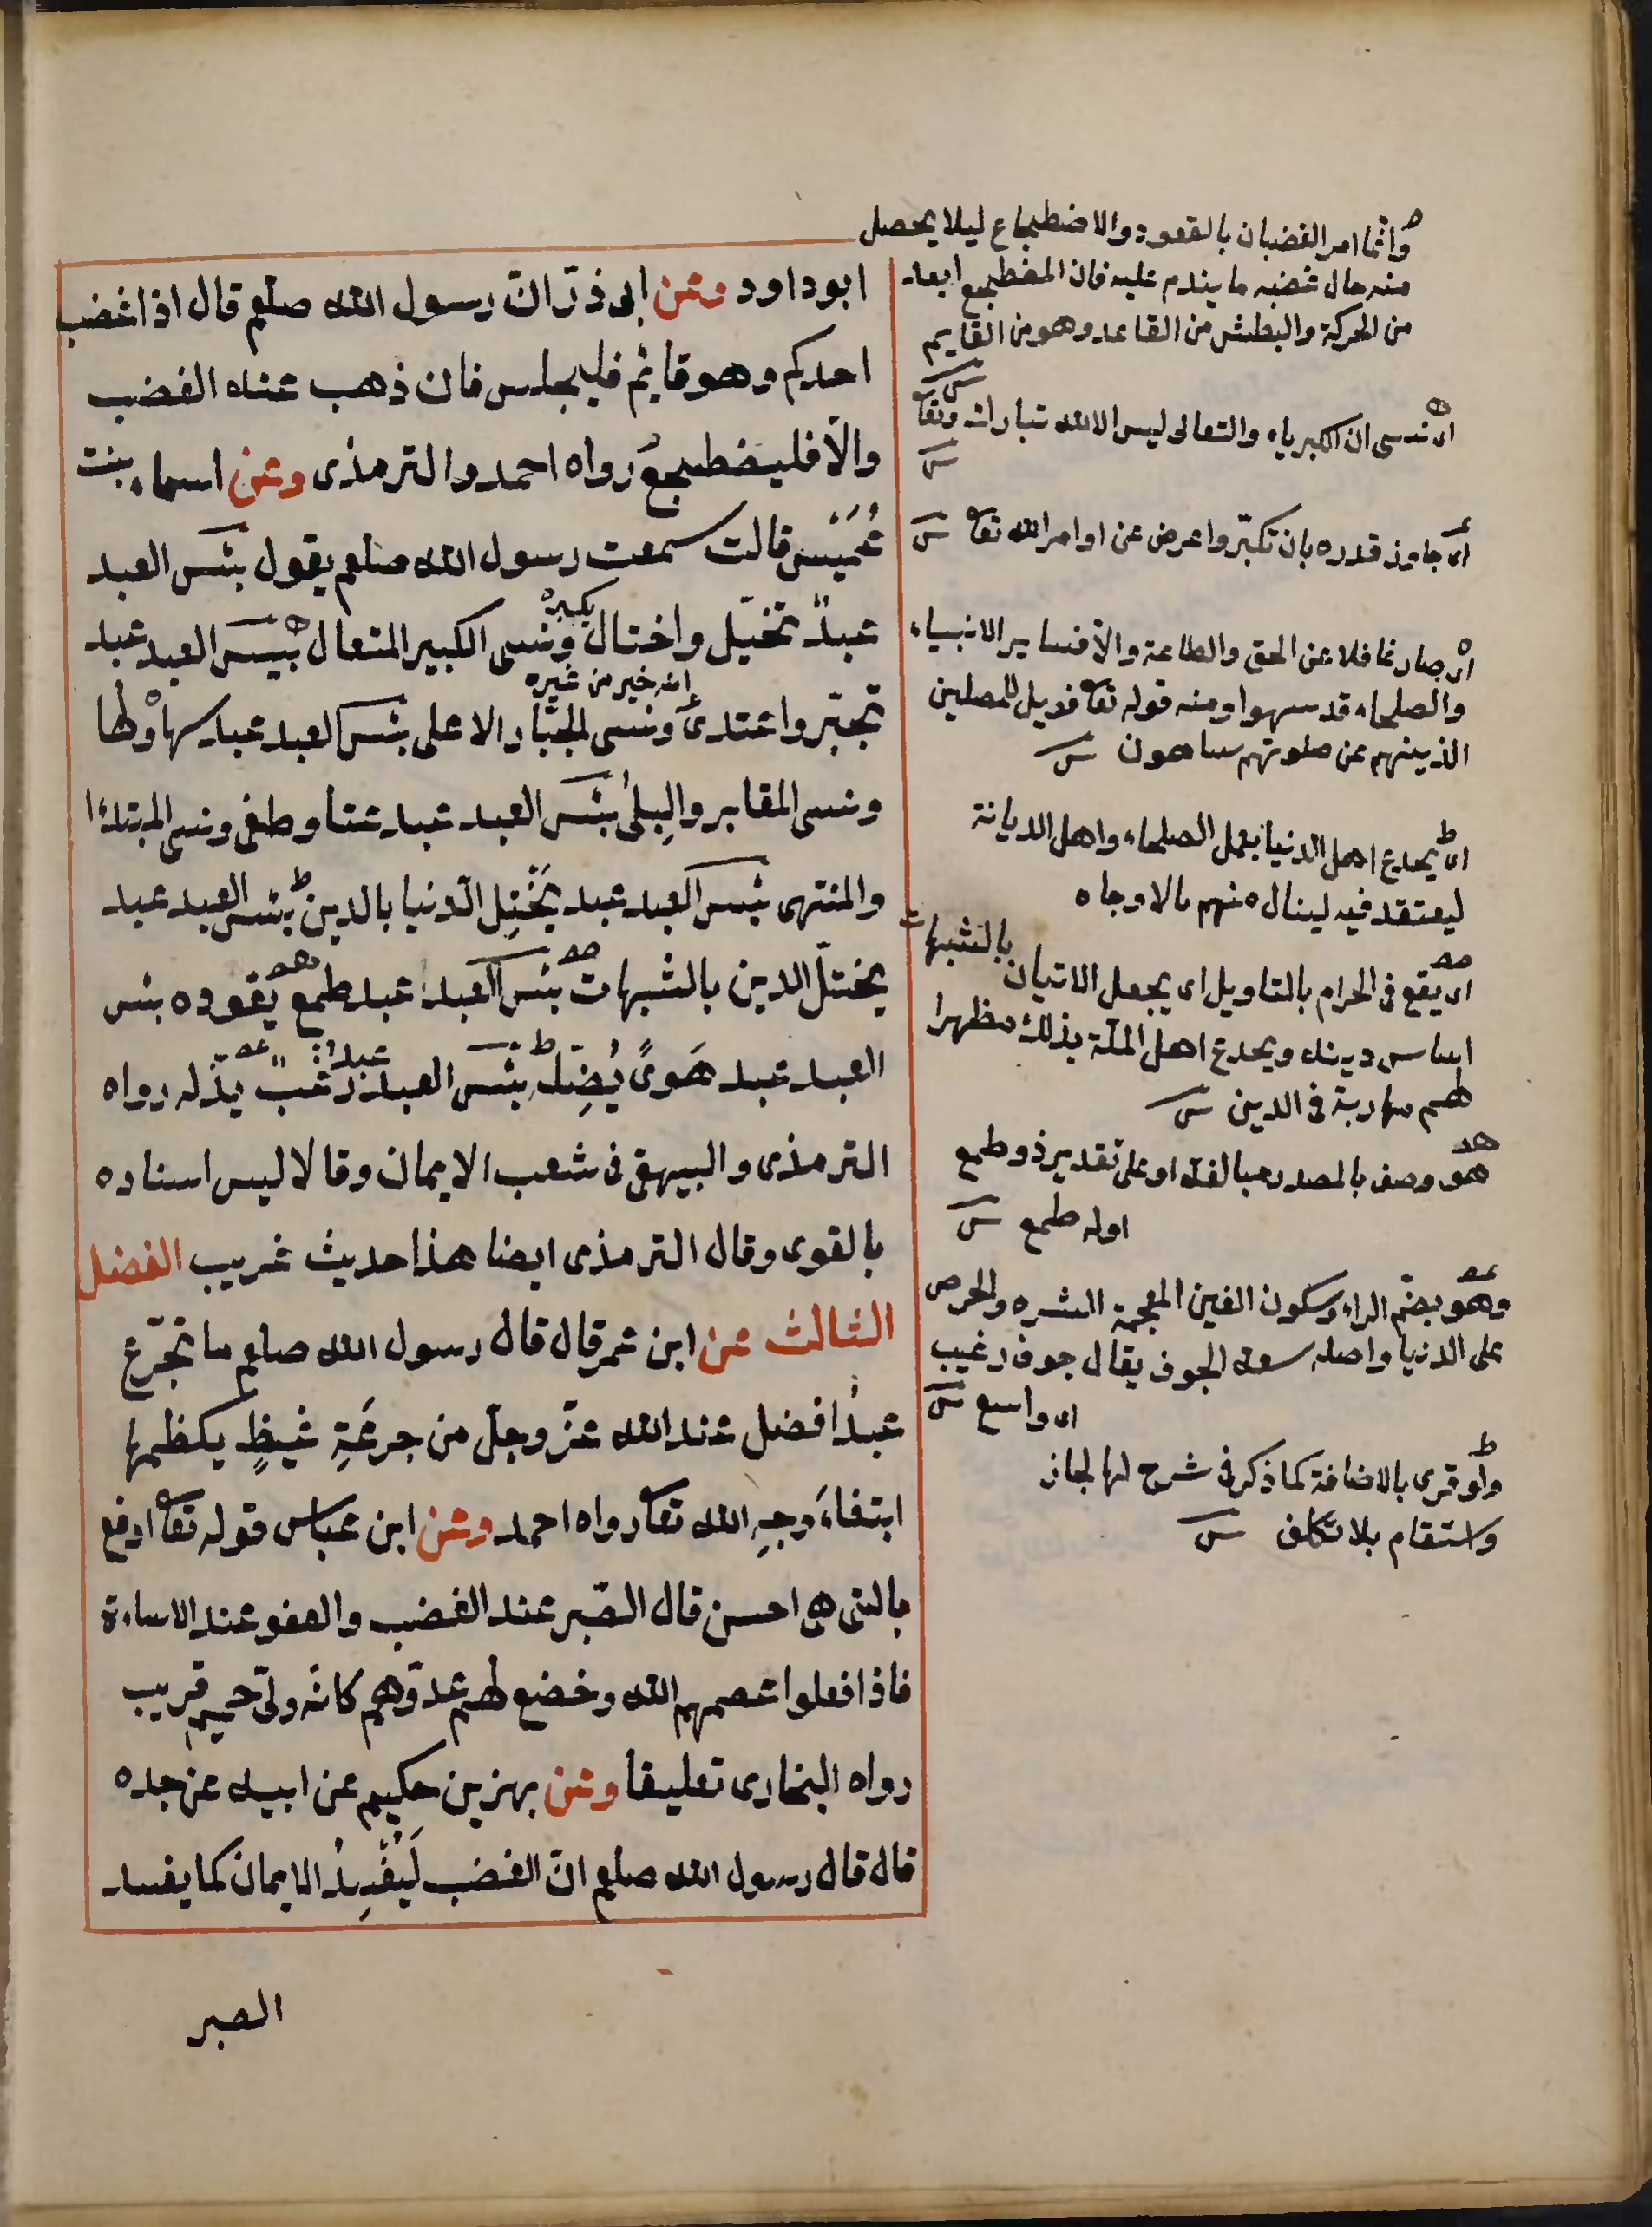 ابوداود وعن ابى ذرّ انّ رسول الله صلعم قال اذا غضب
احدكم وهو قايئم فليجلس فان ذهب عنه الغضب
والّا فليضطجع رواه احمد والترمذى وعن اسماء بنت
عُمَيْس قالت سمعت رسول الله صلعم يقول بئس العبد
عبدٌ تخيّل واختال ونسى الكبير المتعال بئس العبد عبد
تجبّر واعتدى ونسى الجبّار الاعلى بئس العبد عبد سها ولها
ونسى المقابر والبِلىٰ بئس العبد عبد عتا وطغى ونسى المبتدٰا
والمنتهى بئس العبد عبد يَخْتِل الدّنيا بالدين بئس العبد عبد
يختل الدين بالشبهات بئس العبد عبد طمع يقوده بئس
العبد عبد هَوىً يُضِلّه بئس العبد عبد رغب يذلّه رواه
الترمذى والبيهقى فى شعب الايمان وقالا ليس اسناده
بالقوى وقال الترمذى ايضا هذا حديث غريب الفضل
الثالث عن ابن عمر قال قال رسول الله صلعم ما تجرّع
عبدٌ افضل عند الله عزّ وجلّ من جرعَةِ غيظٍ يكظمها
ابتغاءَ وجهِ الله تعا رواه احمد وعن ابن عباس قوله تعا ادفع
بالتى هى احسن قال الصّبر عند الغضب والعفو عند الاساءة
فاذا فعلوا عصمهم الله وخضع لهم عدوّهم كانّه ولىّ حميم قريب
رواه البخارى تعليقا وعن بهز بن حكيم عن ابيه عن جده
قال قال رسول الله صلعم انّ الغضب لَيُفْسِدُ الايمان كما يفسد
الصبر
تكبره
انه خير من غيره
وانّما امر الغضبان بالقعود والاضطجاع ليلا يحصل
منه حال غضبه ما يندم عليه فان المضطجع ابعد
من الحركة والبطش من القاعد وهو من القايم
اى نسى ان الكبرياء والتعالى ليس الا لله تبارك وتعا
اى جاوز قدره بان تكبّر واعرض عن اوامر الله تعا
اى صار غافلا عن الحق والطاعة والّا فساير الانبياء
والصلحاء قد سهوا ومنه قوله تعا فويل للمصلين
الذينهم عن صلوتهم ساهون
اى يخدع اهل الدنيا بعمل الصلحاء واهل الديانة
ليعتقد فيه لينال منهم مالا وجاه
اى يقع فى الحرام بالتاويل اى يجعل الاتيان بالشبهات
اساس دينه ويخدع اهل الملّة بذلك مظهرا
لهم مهاربة فى الدين
هو وصف بالمصدر مبالغة او على تقدير ذو طمع
اوله طمع
وهو بضم الراء وسكون الغين المعجمة الشره والحرص
على الدنيا واصله سعة الجوف يقال جوف رغيب
اى واسع
ولو قرى بالاضافة كما ذكر فى شرح لها لجاز
واستقام بلا تكلف